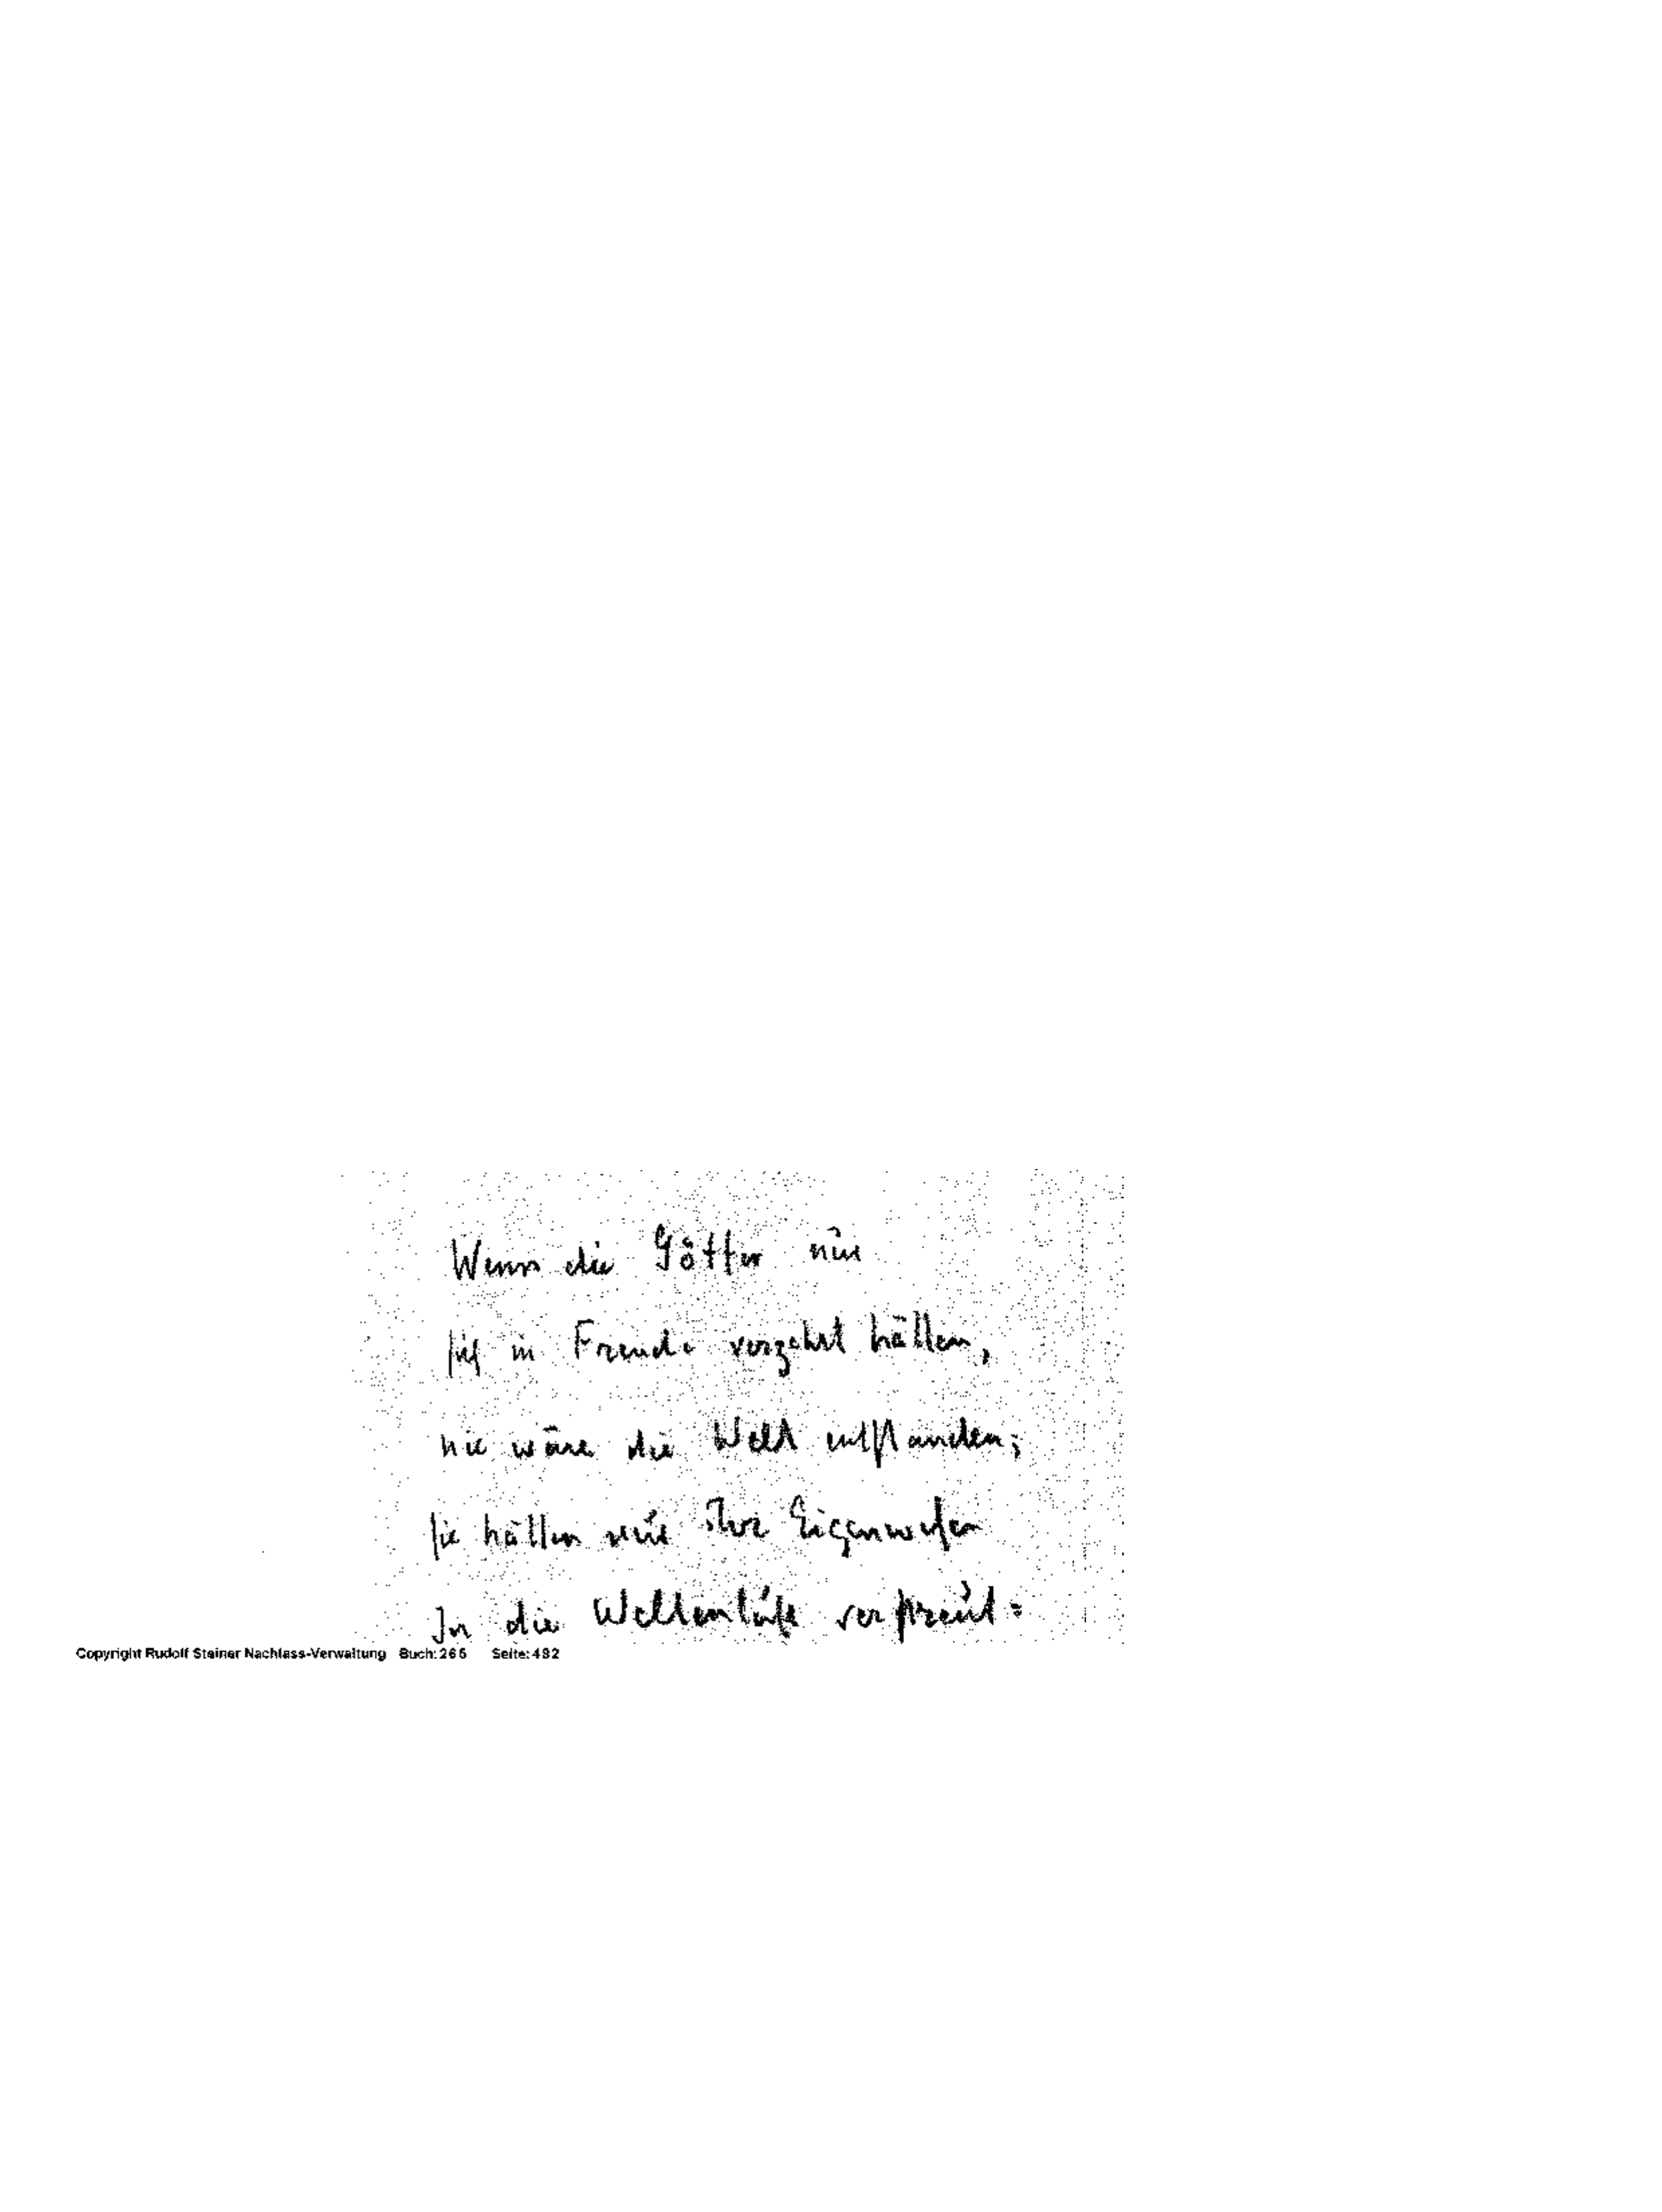 Wenn die Götter nur
sich in Freude verzehrt hätten,
nie wäre die Welt entstanden;
sie hätten nur ihre Eigenwesen
In die verstreut:
Copyright Rudolf Steiner Nachlass-Verwaltung Buch: 265 Seite: 482